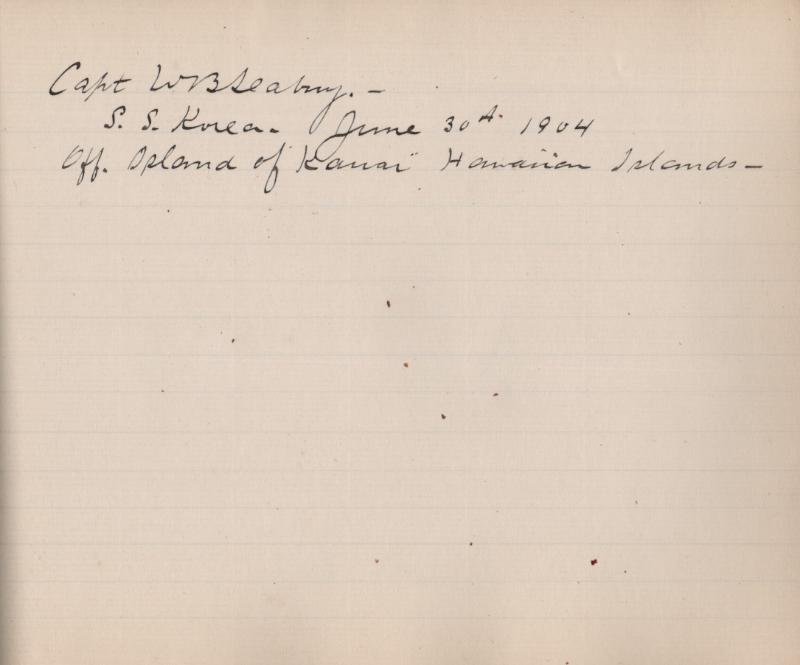 Capt W B Seabury. –
S. S. Korea. June 30th. 1904
Off. Island of Kauai Hawaiian Islands –